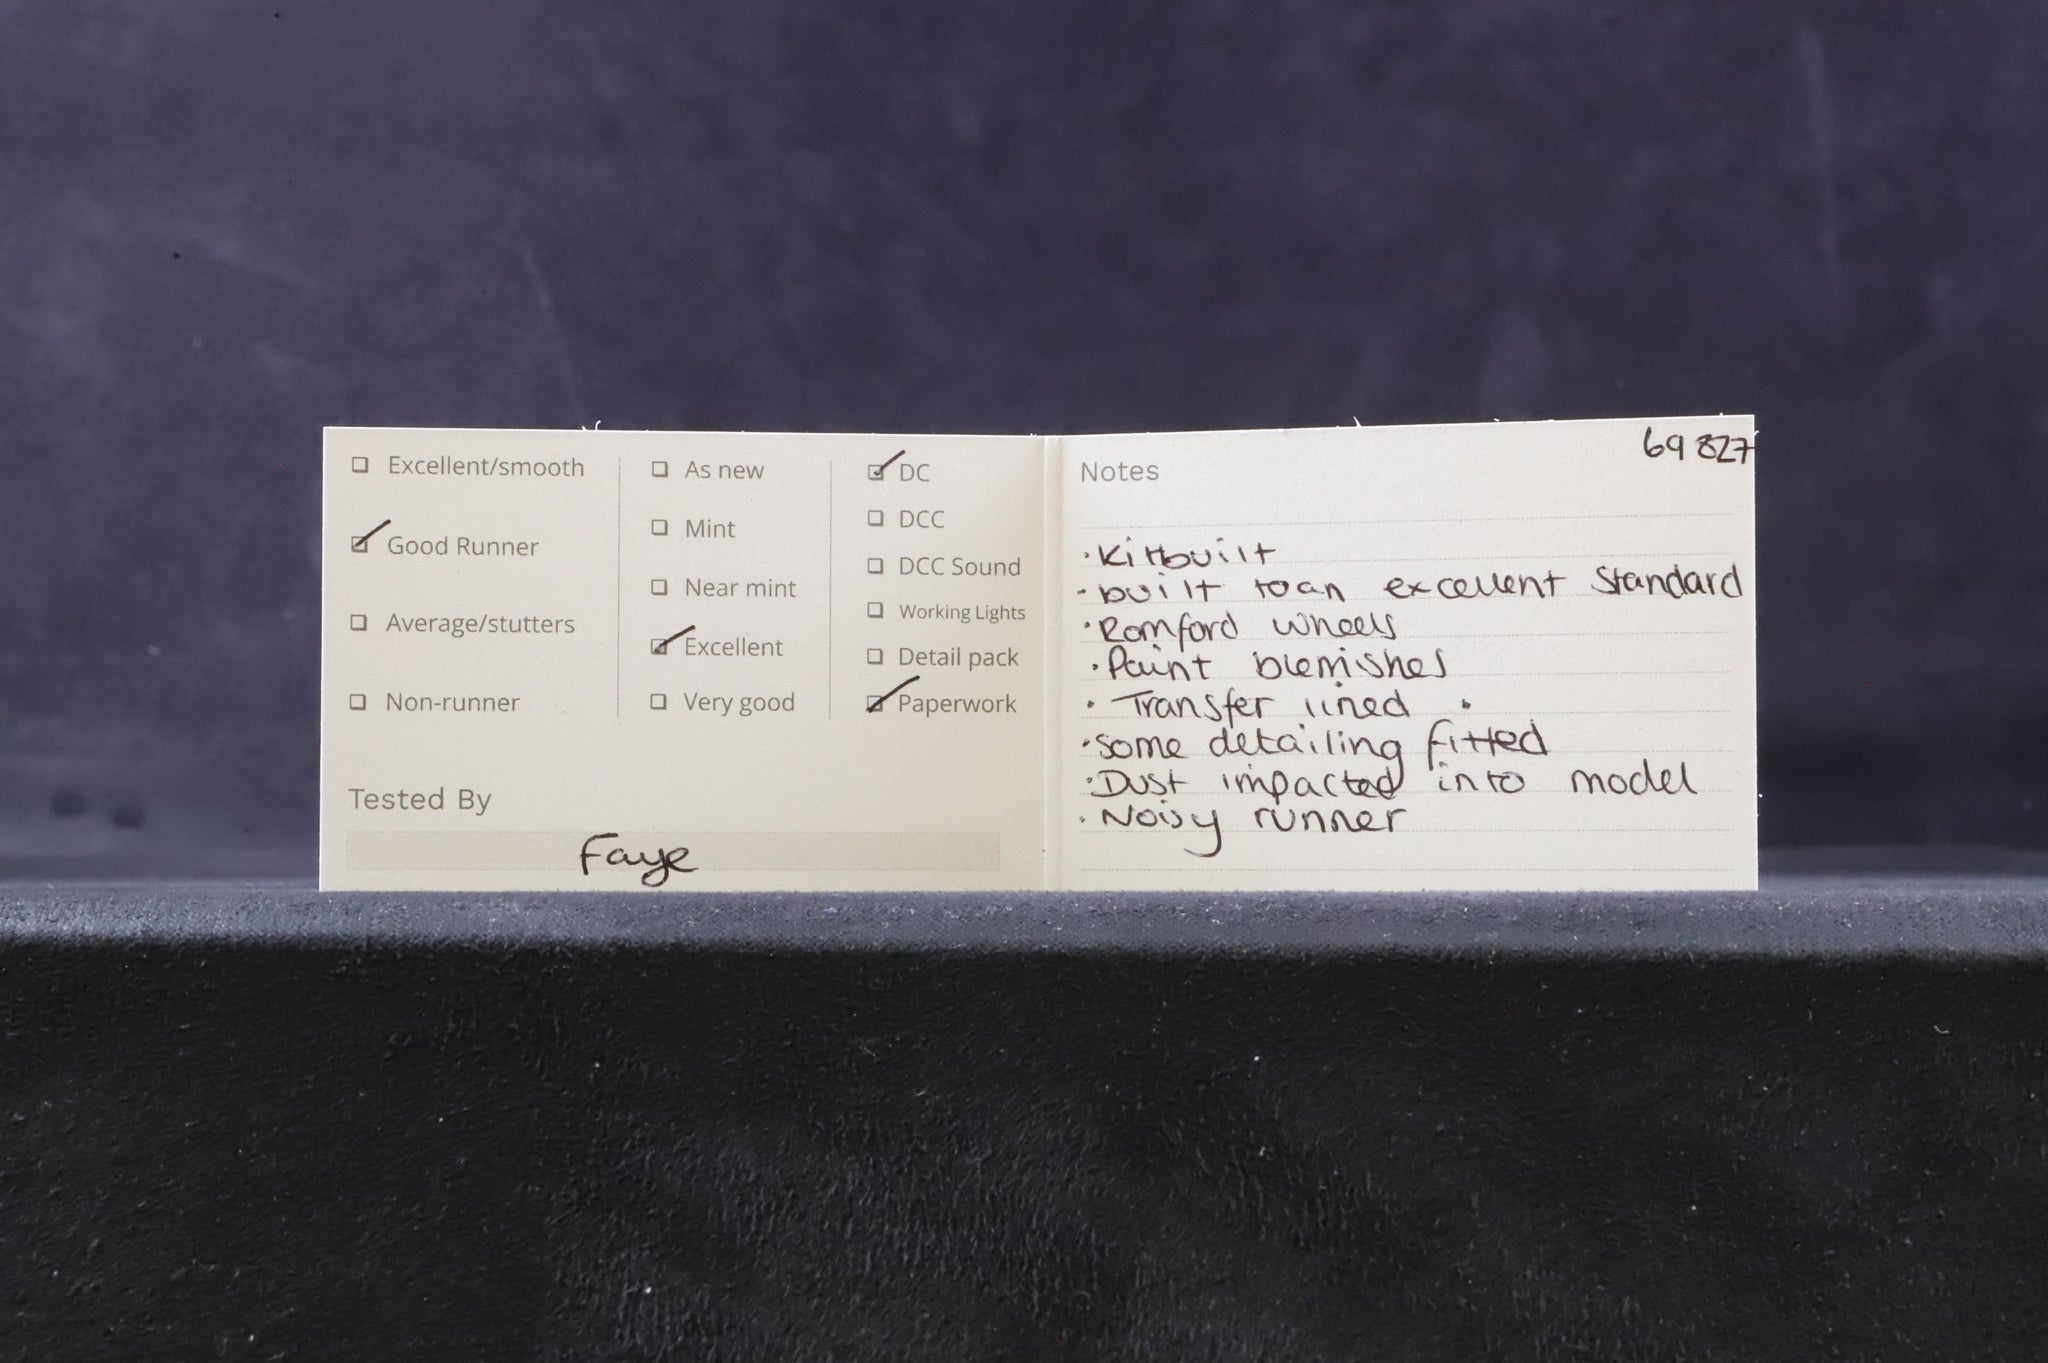 Excellent/smooth
Good Runner
Average/stutters
Non-runner
As new
Mint
Near mint
Excellent
Very good
DC
DCC
DCC Sound
Working Lights
Detail pack
Paperwork
Tested By
Faye
69827
Notes
· Kitbuilt
· built to an excellent standard
· Romford wheels
· Paint blemishes
· Transfer lined
· some detailing fitted
· Dust impacted into model
· Noisy runner